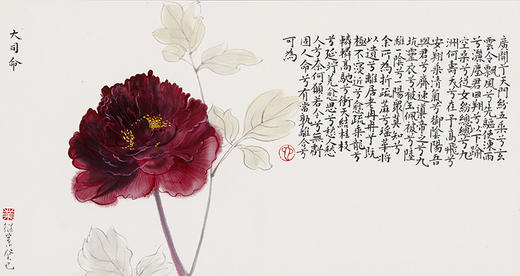 大司命
廣開兮天門紛吾乘兮玄
雲令飄風兮先驅使涷雨
兮灑塵君迴翔兮以下踰
空桑兮從女紛總總兮九
洲何壽夭兮在予高飛兮
安翔乘清氣兮御陰陽吾
與君兮齋速導帝之兮九
坑靈衣兮被被玉佩兮陸
離一陰兮一陽眾莫知兮
余所為折疏麻兮瑤華將
以遺兮離居老冉冉兮既
極不寖近兮愈疏乘龍兮
轔轔高馳兮沖天結桂枝
兮延竚羌愈思兮愁
人兮奈何願若今兮無虧
固人命兮有當孰離合兮
可為
癸巳